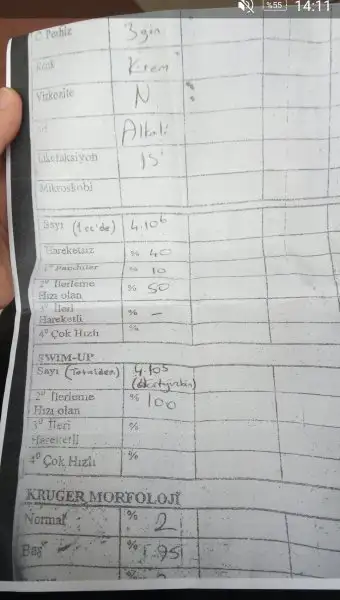 %55 14:11
C. Perhiz 3 gün
Renk Krem
Vizkozite N
Alkali
Likefaksiyon 15'
Mikroskobi
Sayı (1 cc'de) 4.10⁶
Hareketsiz % 40
1° Pandüler % 10
2° İlerleme % 50
Hızı olan
3° İleri % -
Hareketli
4° Çok Hızlı %
SWIM-UP
Sayı (Totalden) 4.10⁵
2° İlerleme % 100
Hızı olan
3° İleri %
Hareketli
4° Çok Hızlı %
KRUGER MORFOLOJİ
Normal % 2
Baş %
%